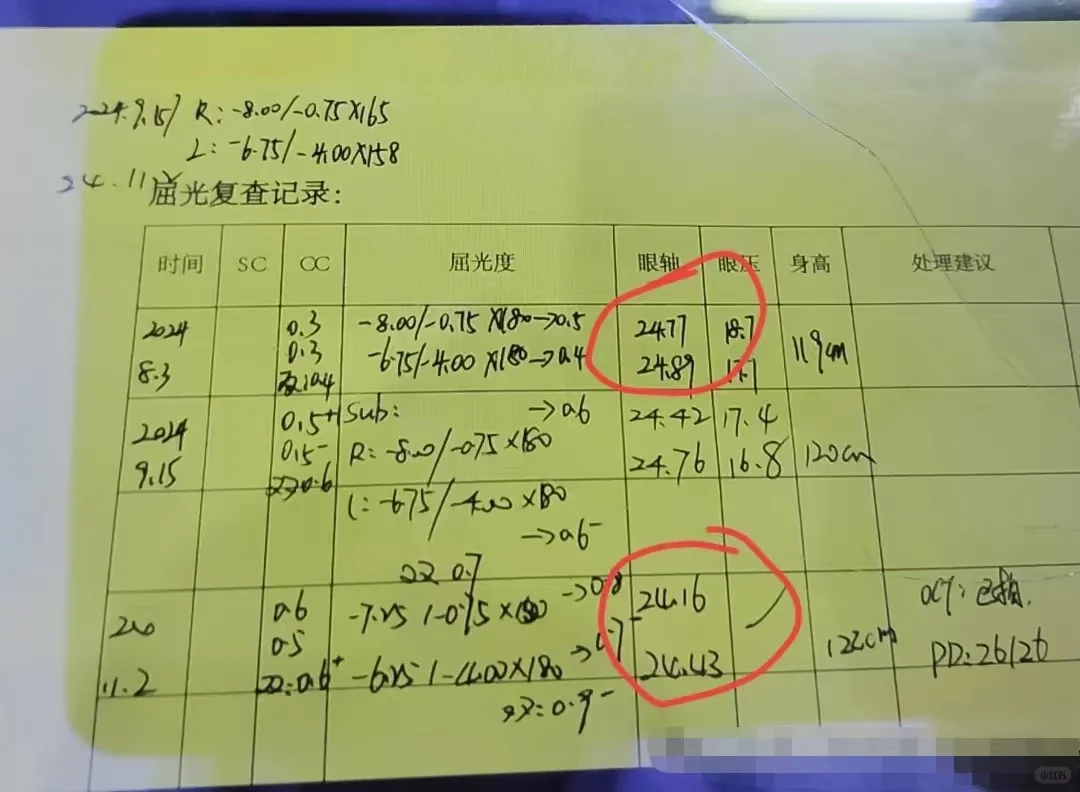 2024.9.15 R: -8.00/-0.75×165
L: -6.75/-4.00×158
24.11.
屈光复查记录:
时间 SC CC 屈光度 眼轴 眼压 身高 处理建议
2024 0.3 -8.00/-0.75×180→0.5 24.77 18.7
8.3 0.3 -6.75/-4.00×180→0.4 24.89 17.7 119cm
双:0.4
2024 0.5+ Sub: →0.6 24.42 17.4
9.15 0.5- R: -8.00/-0.75×180 24.76 16.8 120cm
双:0.6 L: -6.75/-4.00×180
→0.6-
双 0.7
0.6 -7.25/-0.75×180 →0.8 24.16 OCT:
0.5
11.2 双:0.6+ -6.25/-4.00×180 →0.7- 24.43 122cm PD:26/26
双:0.9-
小红书